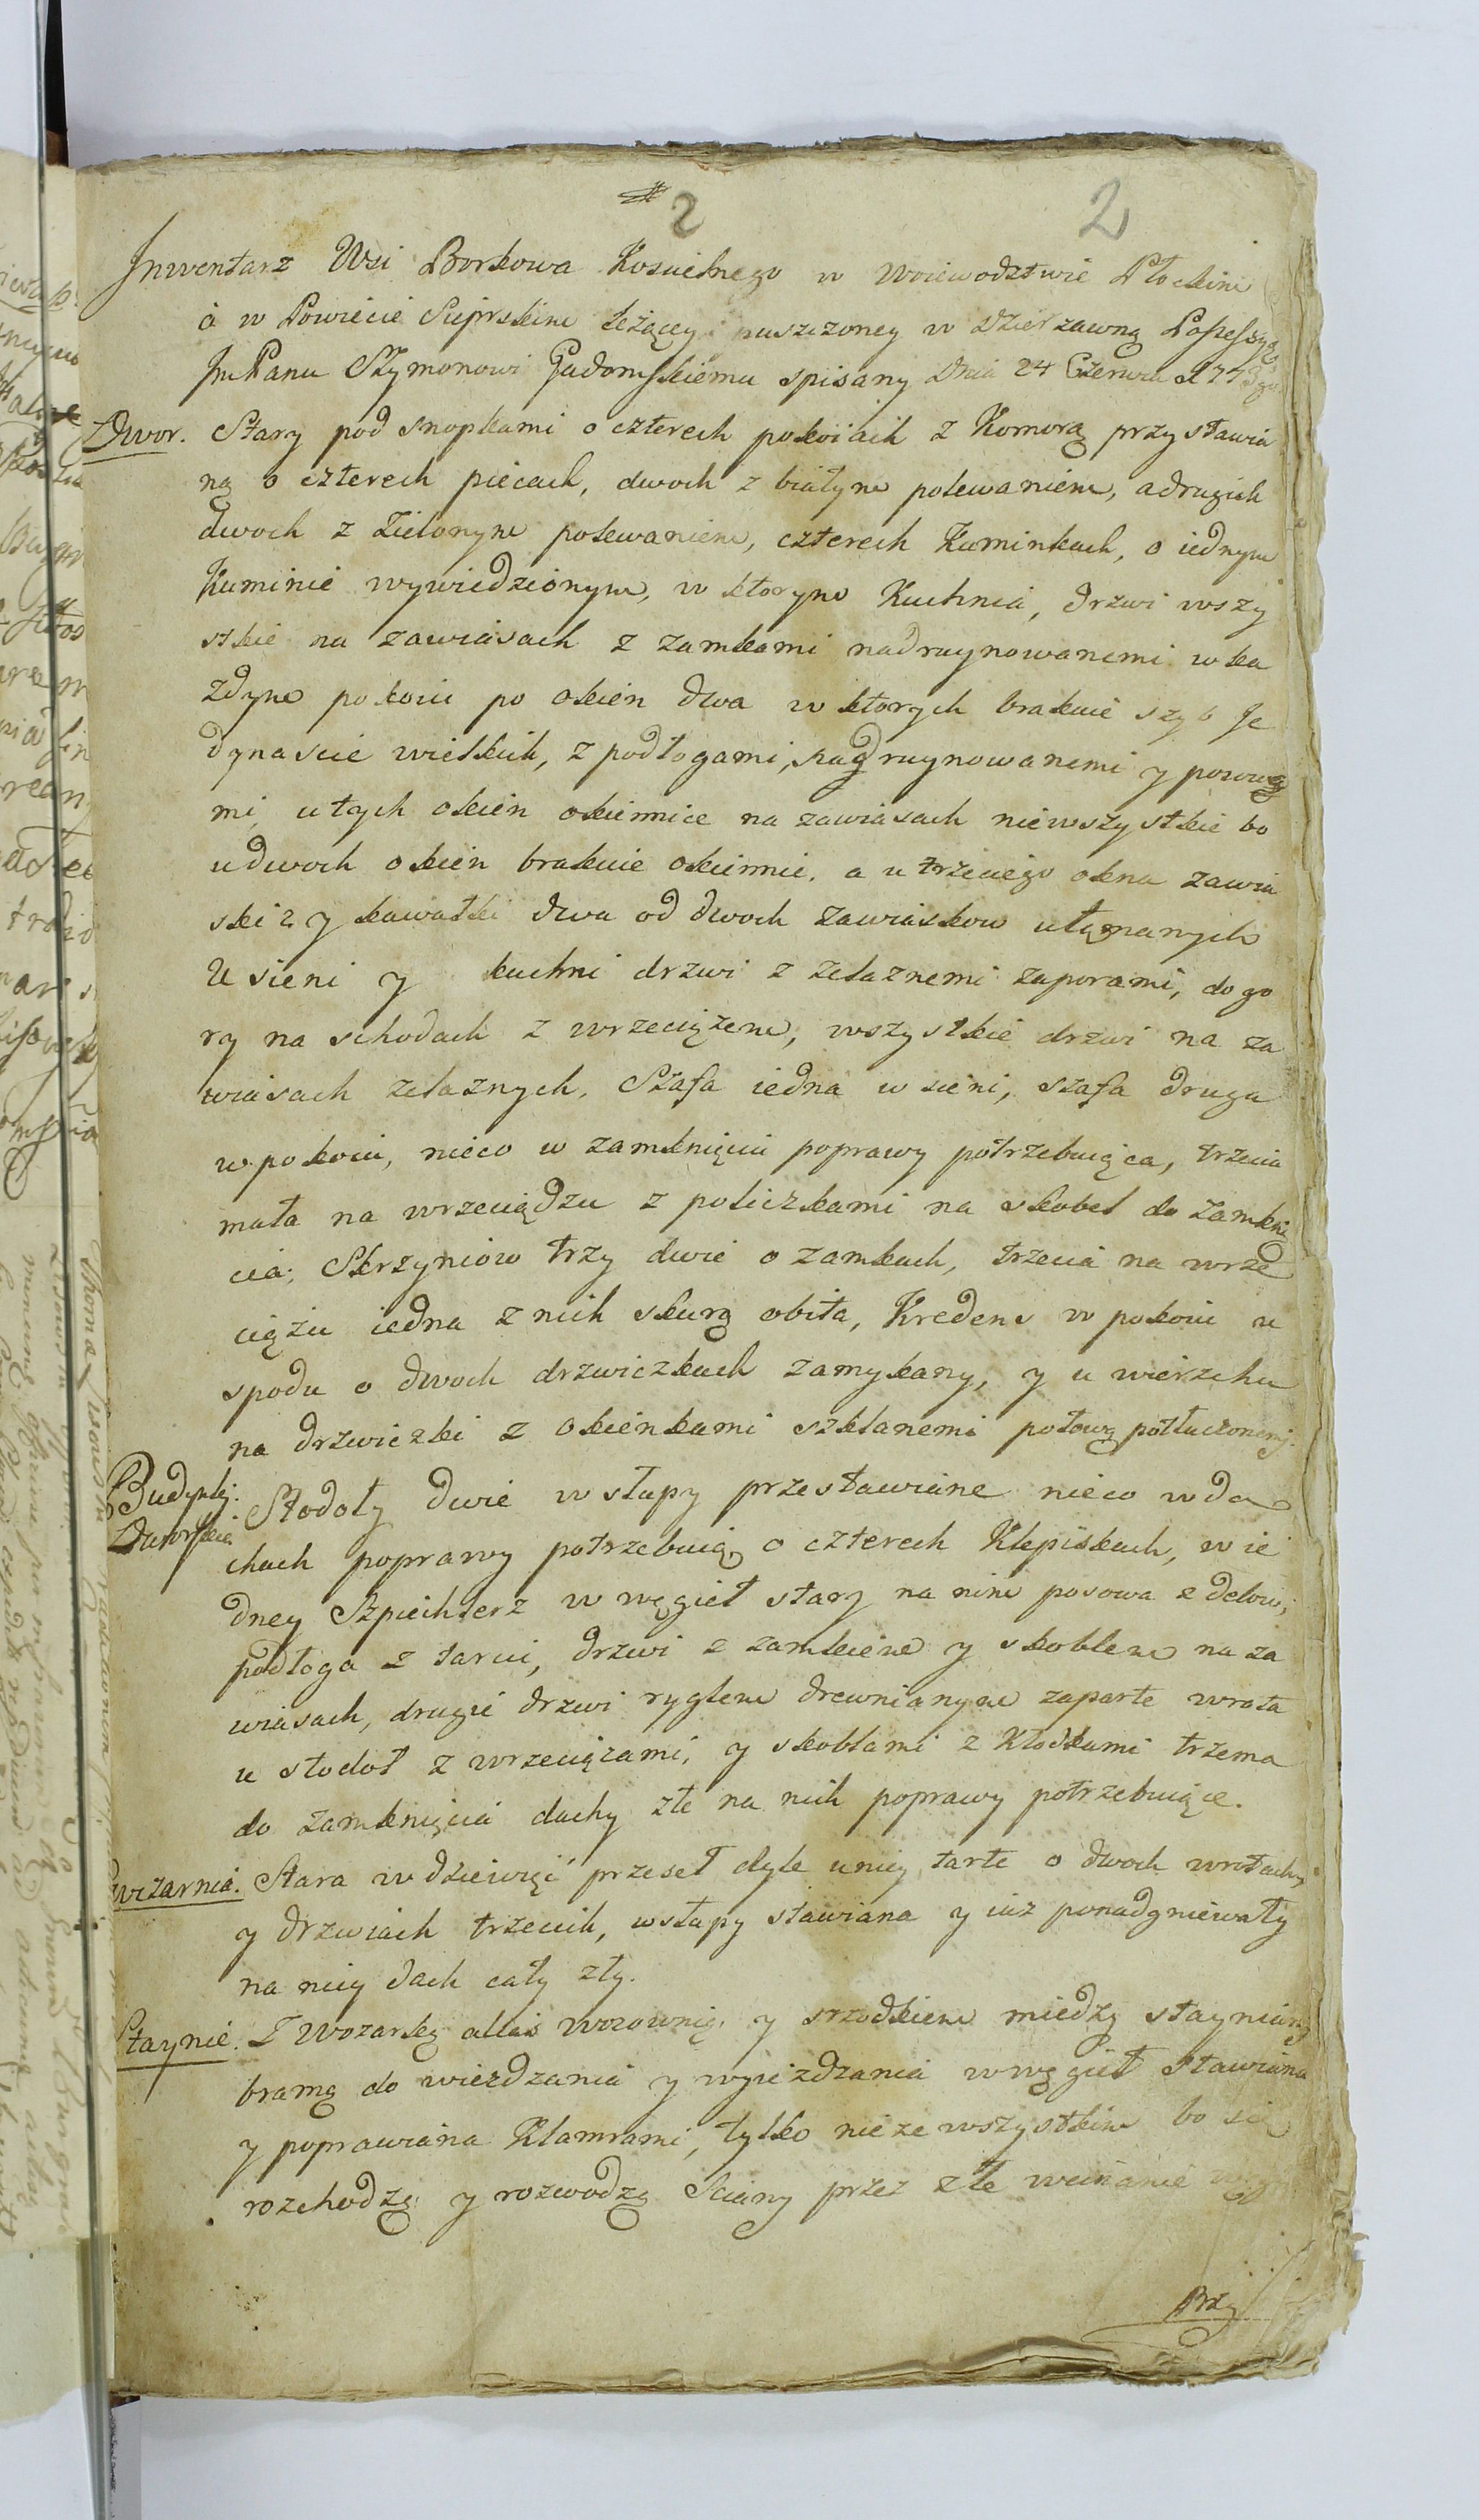 2 2
Inwentarz Wsi Borkowa Koscielnego w Woiewodztwie Płockim
a w Powiecie Sieprskim leżącey puszczoney w Dzierzawną Possessyą
JmPanu Szymonowi Gadomskiemu spisany Dnia 24 Czerwca
Dwor. Stary pod snopkami o czterech pokoiach z Komorą przystawia
ną o czterech piecach, dwoch z białym polewaniem, a drugich
dwoch z Zielonym polewaniem, czterech Kaminkach, o iednym
Kominie wywiedzionym, w ktorym Kuchnia, drzwi wszy
stkie na zawiasach z zamkami nadruynowanemi w ka
zdym pokoiu po okien dwa w ktorych brakuie szyb Je
dynascie wielkich, z podłogami, nadruynowanemi y posową
mi, u tych okien okiennice na zawiasach nie wszystkie bo
u dwoch okien brakuie okiennic, a u trzeciego okna zawia
ski 2 y kawałki dwa od dwoch zawiaskow ułąmanych
U sieni y kuchni drzwi z zelaznemi zaporami, do go
ry na schodach z wrzeciążem, wszystkie drzwi na za
wiasach zelaznych, Szafa iedna w sieni, szafa druga
w pokoiu, nieco w zamknięciu poprawy potrzebuiąca, trzecia
mała na wrzeciądzu z policzkami na skobel do zamknię
cia; Skrzyniow trzy dwie o zamkach, trzecia na wrze
ciążu iedna z nich skurą obita, Kredens w pokoiu u
spodu o dwoch drzwiczkach zamykany, y u wierzchu
na drzwiczki z okienkami szklanemi połową potłuczonemi.
Budynki Dworskie Stodoły dwie w słupy przestawiane nieco w da
chach poprawy potrzebuią, o czterech Klepiskach, w ie
dney Szpichlerz w węgieł stary na nim posowa z delow,
podłoga z tarcic, drzwi z zamkiem y skoblem na za
wiasach, drugie drzwi ryglem drewnianym zaparte wrota
u stodoł z wrzeciążami, y skoblami z Kłodkami trzema
do zamknięcia dachy złe na nich poprawy potrzebuiące.
Owczarnia. Stara w dziewięć przeseł dyle u niey tarte o dwoch wrotach,
y drzwiach trzecich, w słupy stawiana y iuż ponadgniewały
na niey dach cały zły.
Staynie. Z Wozarką alias Wozownią, y srzodkiem miedzy staynią
bramą do wieżdzania y wyieżdzania w węgieł stawiana
y poprawiana Klamrami, tylko nie ze wszystkim bo się
rozchodzą y rozwodzą Sciany przez złe wcinanie
Przy